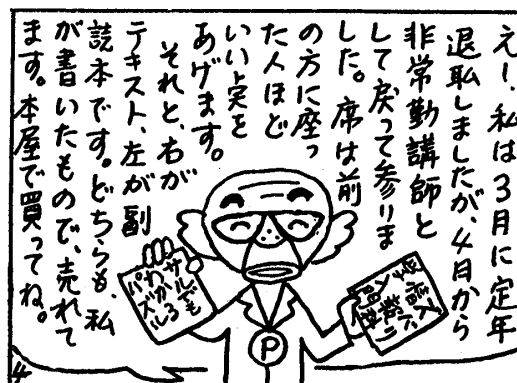 えー、私は3月に定年
退恥しましたが、4月から
非常勤講師と
して戻って参りま
した。席は前
の方に座っ
た人ほど
いい点を
あげます。
それと、右が
テキスト、左が副
読本です。どちらも、私
が書いたもので、売れて
ます。本屋で買ってね。
サルでも
わかる
パズル
P
4